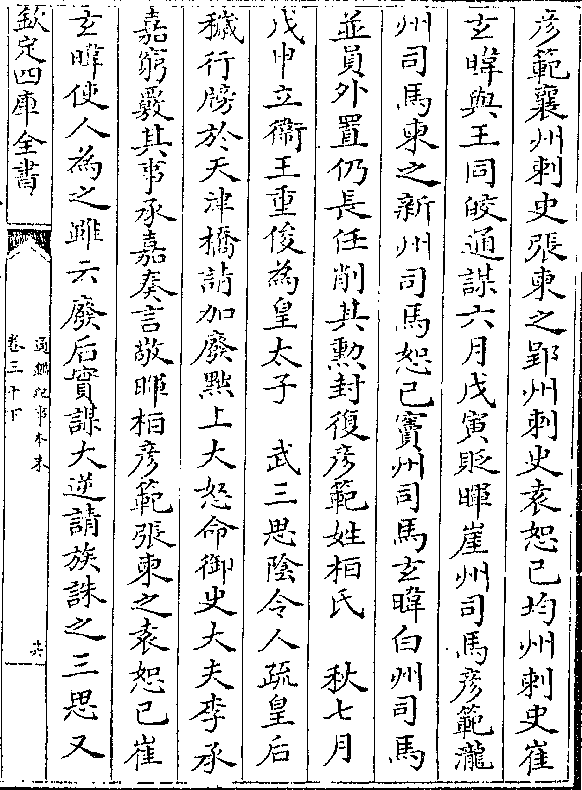 彦範襄州刺史張柬之郢州刺史袁恕己均州刺史崔
玄暐與王同皎通謀六月戊寅貶暉崖州司馬彦範瀧
州司馬柬之新州司馬恕己竇州司馬玄暐白州司馬
並員外置仍長任削其勲封復彦範姓桓氏　秋七月
戊申立衛王重俊為皇太子　武三思隂令人疏皇后
穢行牓於天津橋請加廢黜上大怒命御史大夫李承
嘉窮覈其事承嘉奏言敬暉桓彦範張柬之袁恕己崔
玄暐使人為之雖云廢后實謀大逆請族誅之三思又
欽定四庫全書
通鑑紀事本末
卷三十下
共